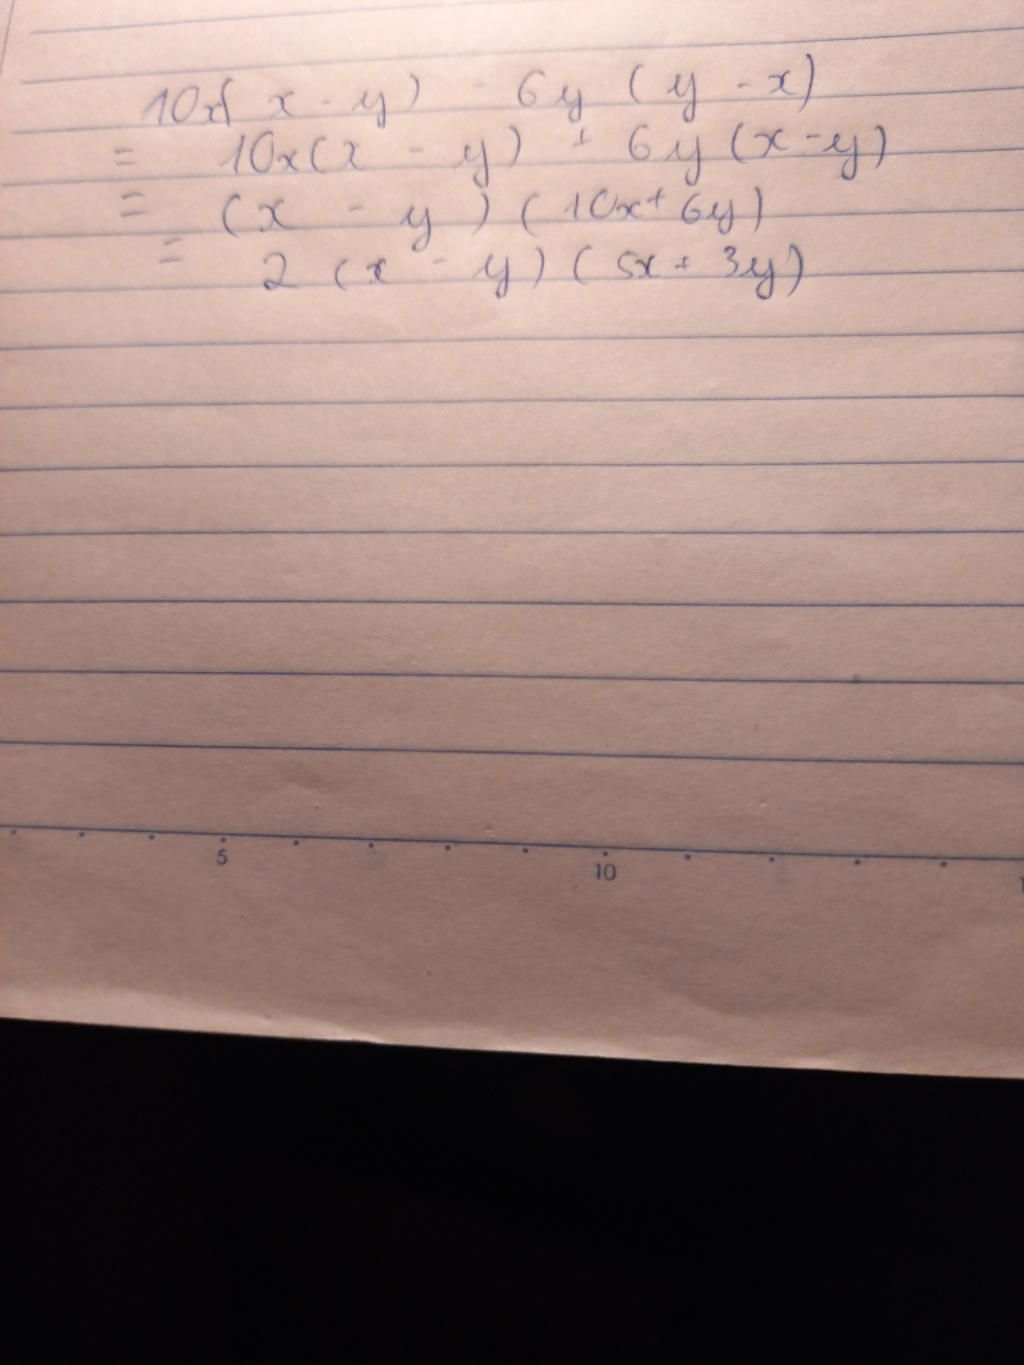 10x( x - y) - 6y ( y - x)
= 10x(x - y) + 6y (x - y)
= (x - y ) ( 10x + 6y)
= 2 (x - y) ( 5x + 3y)
5 10